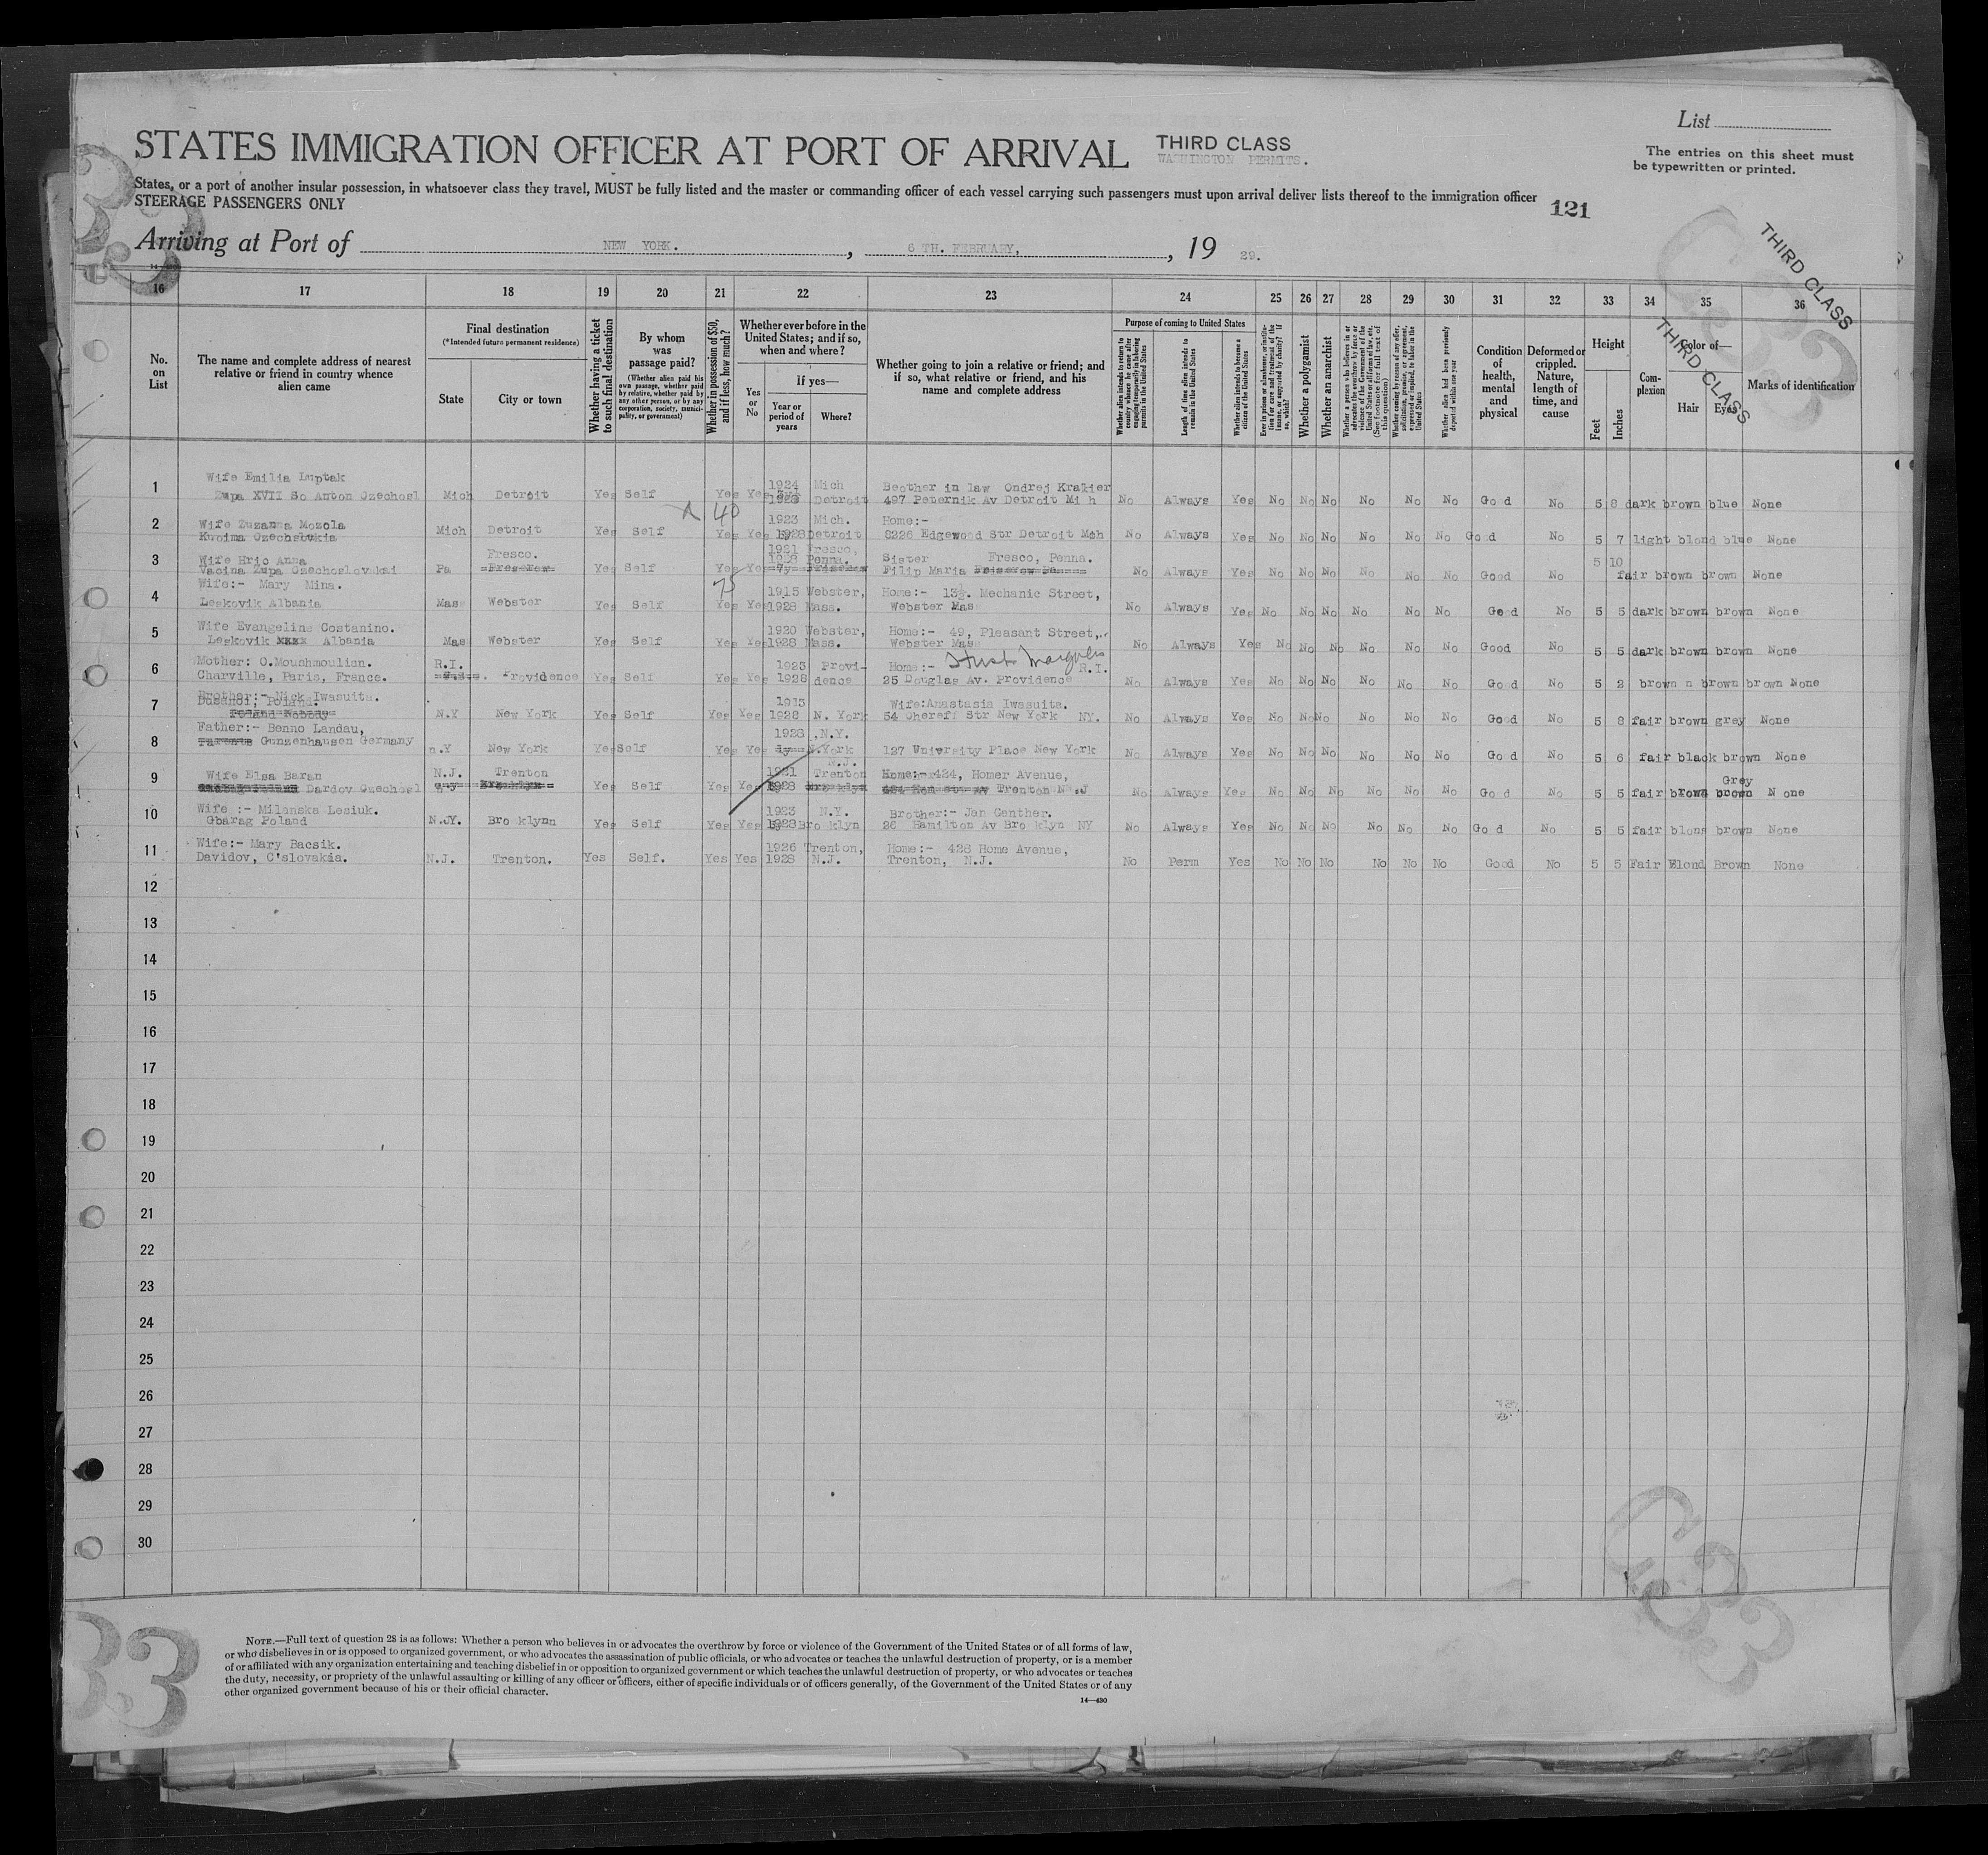 List
STATES IMMIGRATION OFFICER AT PORT OF ARRIVAL
THIRD CLASS
WASHINGTON PERMITS.
The entries on this sheet must
be typewritten or printed.
States, or a port of another insular possession, in whatsoever class they travel, MUST be fully listed and the master or commanding officer of each vessel carrying such passengers must upon arrival deliver lists thereof to the immigration officer
STEERAGE PASSENGERS ONLY
121
Arriving at Port of NEW YORK. , 6 TH. FEBRUARY, , 19 29.
THIRD CLASS
THIRD CLASS
16 17 18 19 20 21 22 23 24 25 26 27 28 29 30 31 32 33 34 35 36
No. on List
The name and complete address of nearest relative or friend in country whence alien came
Final destination
(*Intended future permanent residence)
State
City or town
Whether having a ticket to such final destination
By whom was passage paid?
(Whether alien paid his own passage, whether paid by relative, whether paid by any other person, or by any corporation, society, municipality, or government)
Whether in possession of $50, and if less, how much?
Whether ever before in the United States; and if so, when and where?
Yes or No
If yes—
Year or period of years
Where?
Whether going to join a relative or friend; and if so, what relative or friend, and his name and complete address
Purpose of coming to United States
Whether alien intends to return to country whence he came after engaging temporarily in laboring pursuits in the United States
Length of time alien intends to remain in the United States
Whether alien intends to become a citizen of the United States
Ever in prison or almshouse, or institution for care and treatment of the insane, or supported by charity? If so, which?
Whether a polygamist
Whether an anarchist
Whether a person who believes in or advocates the overthrow by force or violence of the Government of the United States or all forms of law, etc. (See footnote for full text of this question)
Whether coming by reason of any offer, solicitation, promise, or agreement, expressed or implied, to labor in the United States
Whether alien had been previously deported within one year
Condition of health, mental and physical
Deformed or crippled. Nature, length of time, and cause
Height
Feet
Inches
Complexion
Color of—
Hair
Eyes
Marks of identification
1 Wife Emilia Luptak 1924 Mich Beother in law Ondrej Kralier
Zupa XVII So Anton Czechosl Mich Detroit Yes Self Yes Yes 1928 Detroit 497 Peternik Av Detroit Mi h No Always Yes No No No No No No Good No 5 8 dark brown blue None
40
2 Wife Zuzanna Mozola 1923 Mich. Home:-
Mich Detroit Yes Self Yes Yes 1928 Detroit 8226 Edgewood Str Detroit Mch No Always Yes No No No No No No Good No 5 7 light blond blue None
3 Wife Hric Anna Fresco. 1921 Fresco, Sister Fresco, Penna. 5 10
Vacina Zupa Czechoslovakai Pa Yes Self Yes Yes 1928 Penna. Filip Maria No Always Yes No No No No No No Good No fair brown brown None
75
4 Wife:- Mary Mina. 1915 Webster, Home:- 13½. Mechanic Street,
Leskovik Albania Mas Webster Yes Self Yes Yes 1928 Mass. Webster Mas No Always Yes No No No No No No Good No 5 5 dark brown brown None
5 Wife Evangeline Costanino. 1920 Webster, Home:- 49, Pleasant Street,
Leskovik xxxx Albania Mas Webster Yes Self Yes Yes 1928 Mass. Webster Mas No Always Yes No No No No No No Good No 5 5 dark brown brown None
6 Mother: O.Moushmoulian. R.I. 1923 Provi- Home:- R.I.
Charville, Paris, France. Providence Yes Self Yes Yes 1928 dence 25 Douglas Av. Providence No Always Yes No No No No No No Good No 5 2 brown n brown brown None
7 Brother:- Nick Iwasuita. 1913 Wife:Anastasia Iwasuita.
Poland. N.Y New York Yes Self Yes Yes 1928 N. York 54 Str New York NY. No Always Yes No No No No No No Good No 5 8 fair brown grey None
8 Father:- Benno Landau, 1923 ,N.Y.
Gunzenhausen Germany n.Y New York Yes Self Yes Yes N.York 127 University Place New York No Always Yes No No No No No No Good No 5 6 fair black brown None
N.J.
9 Wife Elsa Baran N.J. Trenton 1921 Trenton Home:- 424, Homer Avenue, Grey
Dardov Czechosl Yes Self Yes Yes 1928 Trenton N.J No Always Yes No No No No No No Good No 5 5 fair brown brown None
10 Wife :- Milanska Lesiuk. 1923 N.Y. Brother:- Jan Genther.
Gbarag Poland N.JY. Bro klynn Yes Self Yes Yes 1928 Bro klyn 26 Hamilton Av Bro klyn NY No Always Yes No No No No No No Good No 5 5 fair blond brown None
11 Wife:- Mary Bacsik. 1926 Trenton, Home:- 428 Home Avenue,
Davidov, C'slovakia. N.J. Trenton. Yes Self. Yes Yes 1928 N.J. Trenton, N.J. No Perm Yes No No No No No No Good No 5 5 Fair Blond Brown None
12
13
14
15
16
17
18
19
20
21
22
23
24
25
26
27
28
29
30
NOTE.—Full text of question 28 is as follows: Whether a person who believes in or advocates the overthrow by force or violence of the Government of the United States or of all forms of law,
or who disbelieves in or is opposed to organized government, or who advocates the assassination of public officials, or who advocates or teaches the unlawful destruction of property, or is a member
of or affiliated with any organization entertaining and teaching disbelief in or opposition to organized government or which teaches the unlawful destruction of property, or who advocates or teaches
the duty, necessity, or propriety of the unlawful assaulting or killing of any officer or officers, either of specific individuals or of officers generally, of the Government of the United States or of any
other organized government because of his or their official character.
14—430
33